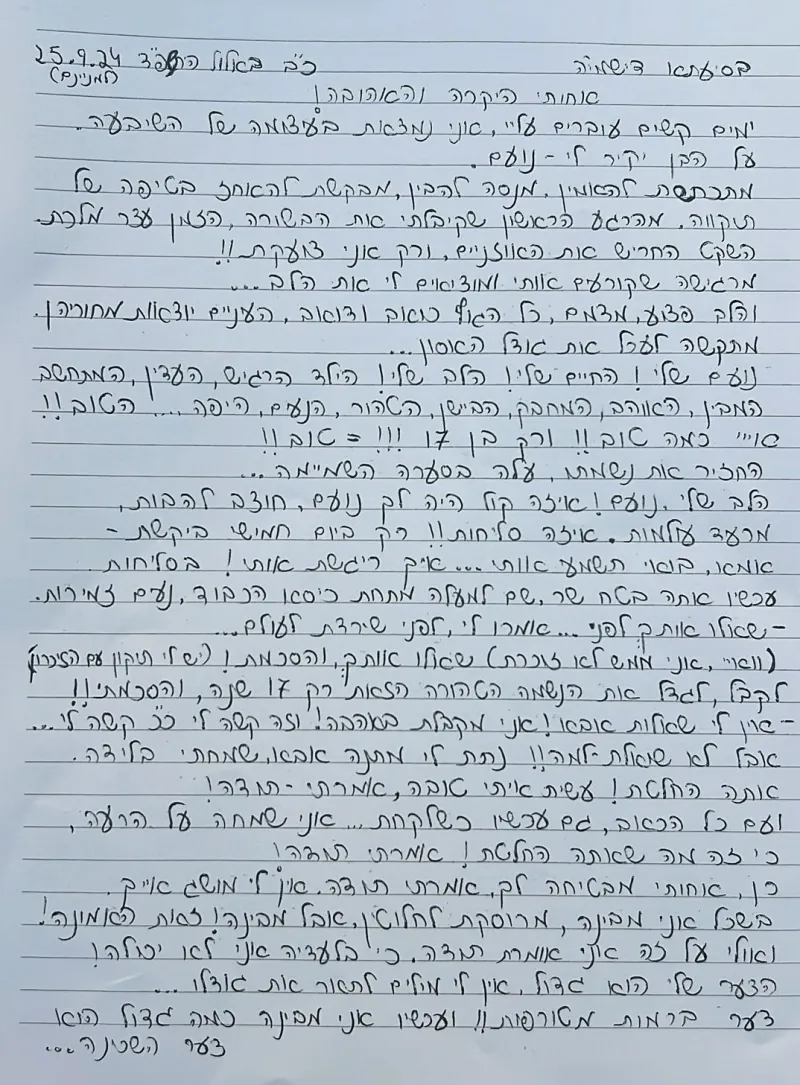 בסיעתא דישמיא כ"ב באלול התשפ"ד 25.9.24
(למנינם)
אחותי היקרה והאהובה!
ימים קשים עוברים עליי, אני נמצאת בעיצומה של השיבעה.
על הבן יקיר לי - נועם.
מתכחשת להאמין, מנסה להבין, מבקשת להאחז בטיפה של
תיקווה. מהרגע הראשון שקיבלתי את הבשורה, הזמן עצר מלכת.
השקט החריש את האוזניים, ורק אני צועקת!!
מרגישה שקורעים אותי ומוציאים לי את הלב...
והלב פצוע, מדמם, כל הגוף כואב ודואב, העיניים יוצאות מחוריהן.
מתקשה לעכל את גודל האסון...
נועם שלי! החיים שלי! הלב שלי! הילד הרגיש, העדין, המתחשב
המבין, האוהב, המחבק, הבישן, הטהור, הנעים, היפה... הטוב!!
אוי"י כמה טוב!! ורק בן 17!!! = טוב!!
החזיר את נשמתו, עלה בסערה השמיימה...
הלב שלי, נועם! איזה קול היה לך נועם, חוצב להבות,
מרעיד עולמות. איזה סליחות!! רק ביום חמישי ביקשת -
אמא, בואי תשמעי אותי... איך ריגשת אותי! בסליחות
עכשיו אתה בטח שר, שם למעלה מתחת כיסא הכבוד, נעים זמירות.
- שאלו אותך לפני... אמרו לי, לפני שירדת לעולם...
(וואיי, אני ממש לא זוכרת) שאלו אותך, והסכמת! (יש לי תיקון עם הזיכרון)
לקבל, לגדל את הנשמה הטהורה הזאת רק 17 שנה, והסכמתי!!
- אין לי שאלות אבא! אני מקבלת באהבה! וזה קשה לי כ"כ קשה לי...
אבל לא שואלת - למה!! נתת לי מתנה אבא, שמחתי בלידה.
אתה החלטת! עשית איתי טובה, אמרתי - תודה!
ועם כל הכאב, גם עכשיו כשלקחת... אני שמחה על הרעה,
כי זה מה שאתה החלטת! אמרתי תודה!
כן, אחותי מבטיחה לך, אמרתי תודה. אין לי מושג אייך.
בשכל אני מבינה, מרוסקת לחלוטין, אבל מבינה! זאת האמונה!
ואולי על זה אני אומרת תודה. כי בלעדיה אני לא יכולה!
הצער שלי הוא גדול, אין לי מילים לתאר את גודלו...
צער ברמות מטורפות!! ועכשיו אני מבינה כמה גדול הוא
צער השכינה...